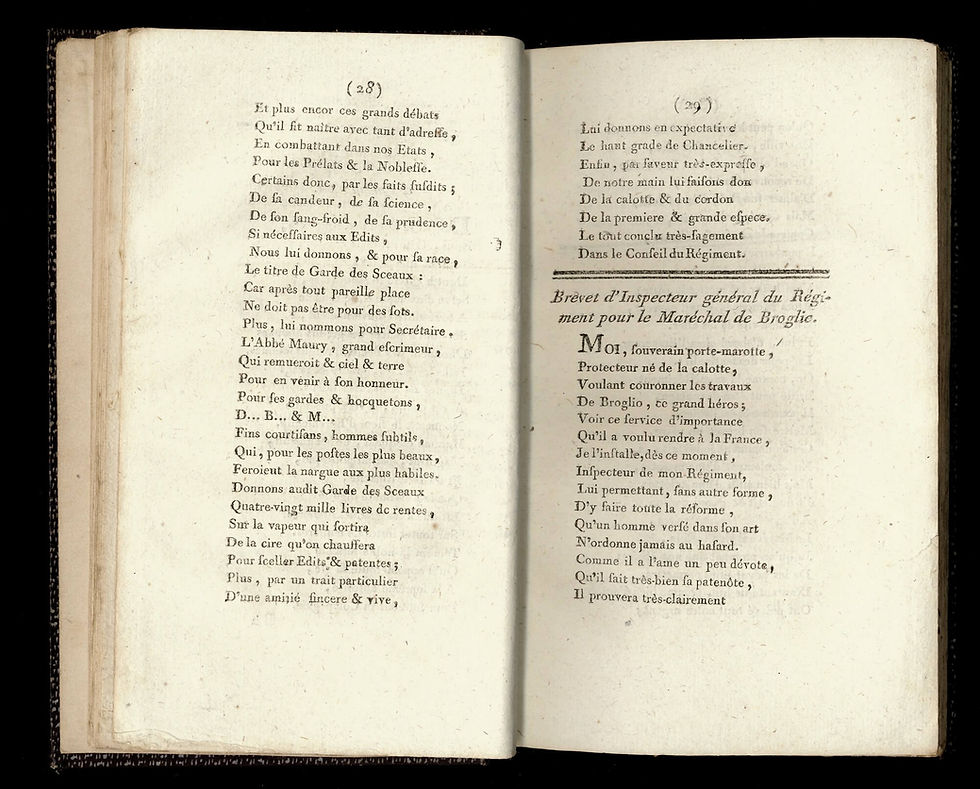 (28)
Et plus encor ces grands débats
Qu'il fit naître avec tant d'adreſſe,
En combattant dans nos Etats,
Pour les Prélats & la Nobleſſe.
Certains donc, par les faits ſuſdits ;
De ſa candeur, de ſa ſcience,
De ſon ſang-froid, de ſa prudence,
Si néceſſaires aux Edits,
Nous lui donnons, & pour ſa race,
Le titre de Garde des Sceaux :
Car après tout pareille place
Ne doit pas être pour des ſots.
Plus, lui nommons pour Secrétaire,
L'Abbé Maury, grand eſcrimeur,
Qui remueroit & ciel & terre
Pour en venir à ſon honneur.
Pour ſes gardes & hocquetons,
D... B... & M...
Fins courtiſans, hommes ſubtils,
Qui, pour les poſtes les plus beaux,
Feroient la nargue aux plus habiles.
Donnons audit Garde des Sceaux
Quatre-vingt mille livres de rentes,
Sur la vapeur qui ſortira
De la cire qu'on chauffera
Pour ſceller Edits & patentes ;
Plus, par un trait particulier
D'une amitié ſincere & vive,
(29)
Lui donnons en expectative
Le haut grade de Chancelier.
Enfin, par faveur très-expreſſe,
De notre main lui faiſons don
De la calotte & du cordon
De la premiere & grande eſpece.
Le tout conclu très-ſagement
Dans le Conſeil du Régiment.
Brevet d'Inſpecteur général du Régi-
ment pour le Maréchal de Broglie.
MOI, ſouverain porte-marotte,
Protecteur né de la calotte,
Voulant couronner les travaux
De Broglio, ce grand héros ;
Voir ce ſervice d'importance
Qu'il a voulu rendre à la France,
Je l'inſtalle, dès ce moment,
Inſpecteur de mon Régiment,
Lui permettant, ſans autre forme,
D'y faire toute la réforme,
Qu'un homme verſé dans ſon art
N'ordonne jamais au haſard.
Comme il a l'ame un peu dévote,
Qu'il fait très-bien ſa patenôte,
Il prouvera très-clairement